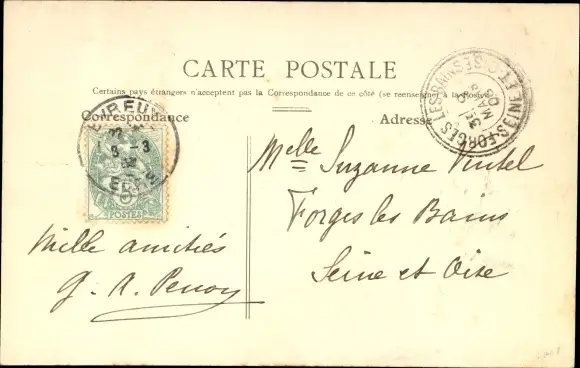 CARTE POSTALE
Certains pays étrangers n'acceptent pas la Correspondance de ce côté (se renseigner à la Poste)
Correspondance
Adresse
EVREUX
8 - 3
EURE
POSTES
FORGES LES BAINS
SEINE-ET-OISE
MARS
Mlle Suzanne
Forges les Bains
Seine et Oise
Mille amitiés
G. A.